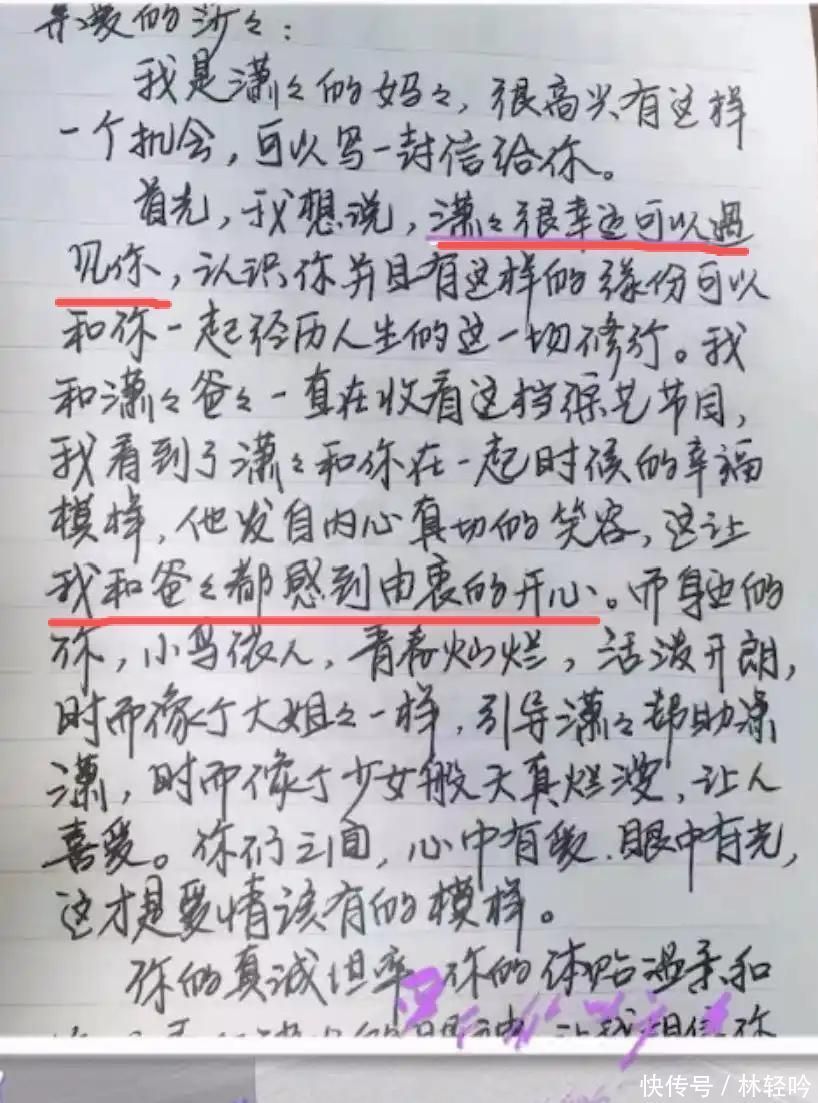 亲爱的沙々：
我是潇々的妈々，很高兴有这样
一个机会，可以写一封信给你。
首先，我想说，潇々很幸运可以遇
见你，认识你并且有这样的缘份可以
和你一起经历人生的这一切修行。我
和潇々爸々一直在收看这档综艺节目，
我看到了潇々和你在一起时候的幸福
模样，他发自内心真切的笑容，这让
我和爸々都感到由衷的开心。而身边的
你，小鸟依人，青春灿烂，活泼开朗，
时而像个大姐々一样，引导潇々帮助潇
潇，时而像个少女般天真烂漫，让人
喜爱。你们之间，心中有爱，眼中有光，
这才是爱情该有的模样。
你的真诚坦率，你的体贴温柔和
让我相信你
快传号／林轻吟